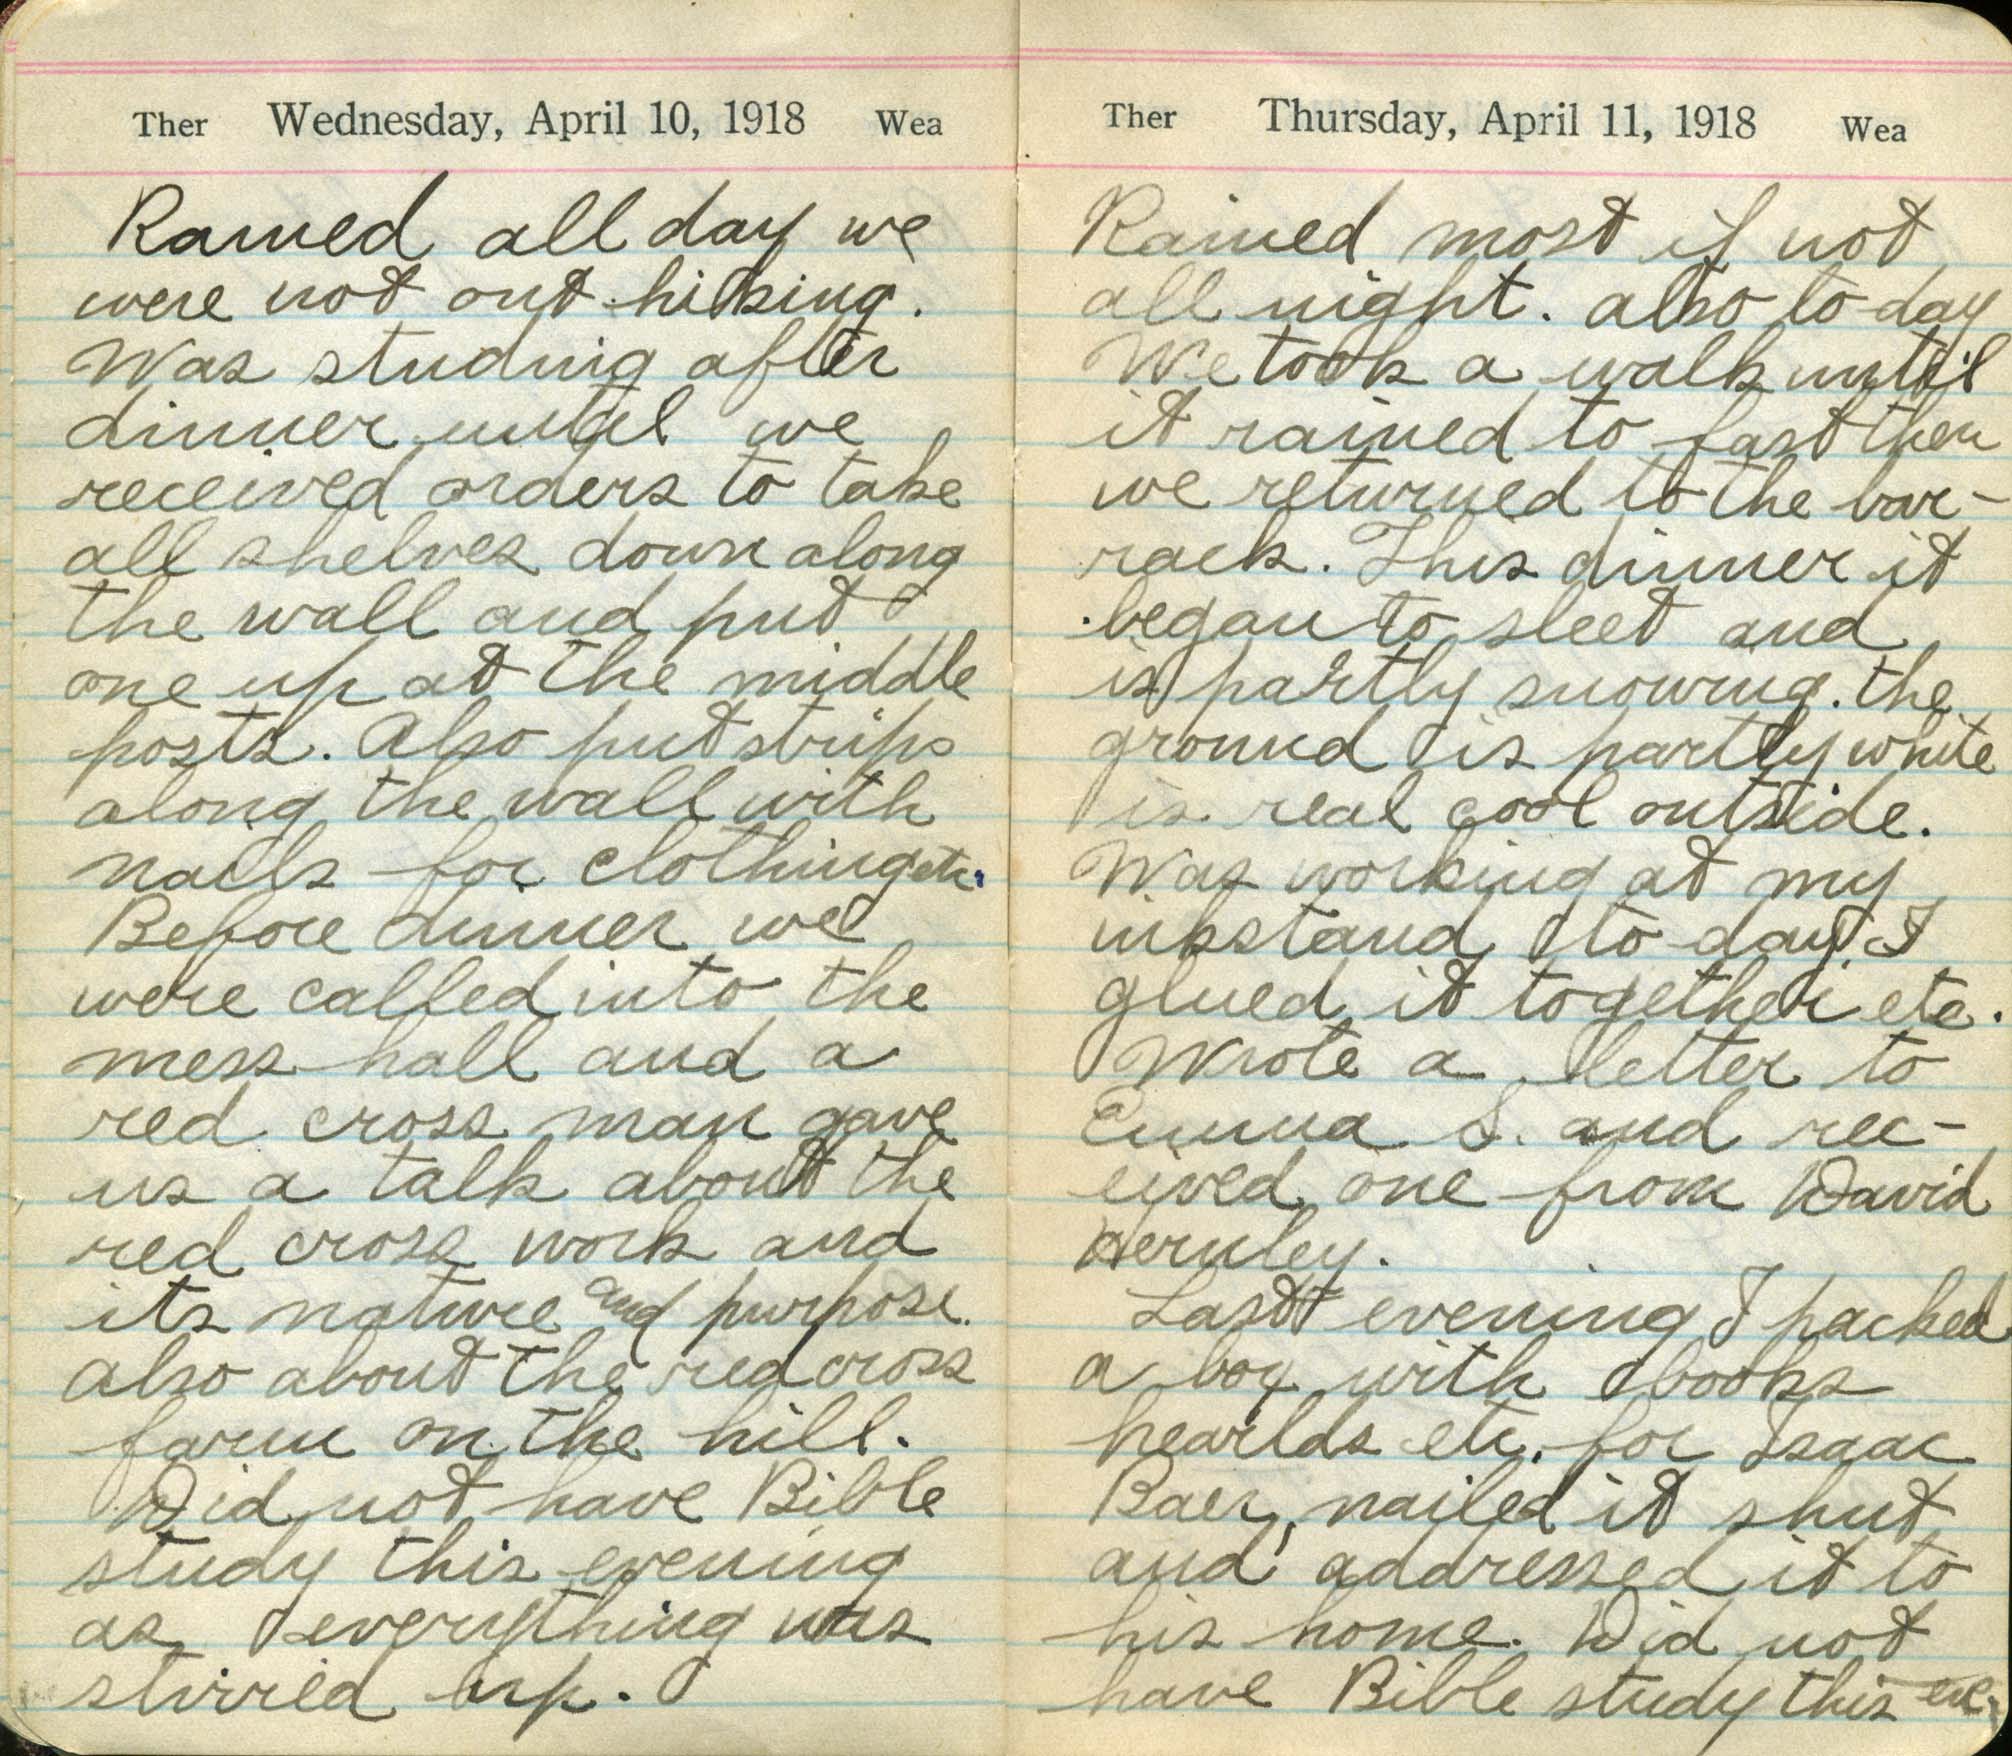 Ther Wednesday, April 10, 1918 Wea
Rained all day we
were not out hiking.
Was studing after
dinner until we
received orders to take
all shelves down along
the wall and put
one up at the middle
posts. Also put strips
along the wall with
nails for clothing etc.
Before dinner we
were called into the
mess hall and a
red cross man gave
us a talk about the
red cross work and
its nature and purpose.
also about the red cross
farm on the hill.
Did not have Bible
study this evening
as everything was
stirred up.
Ther Thursday, April 11, 1918 Wea
Rained most if not
all night. also to-day
We took a walk until
it rained to fast then
we returned to the bar-
rack. This dinner it
began to sleet and
is partly snowing. the
ground is partly white
is real cool outside.
Was working at my
inkstand to-day. I
glued it together etc.
Wrote a letter to
Emma S. and rec-
eived one from David
Hernley.
Last evening I packed
a box with books
hearlds etc. for Isaac
Baer, nailed it shut
and addressed it to
his home. Did not
have Bible study this eve.